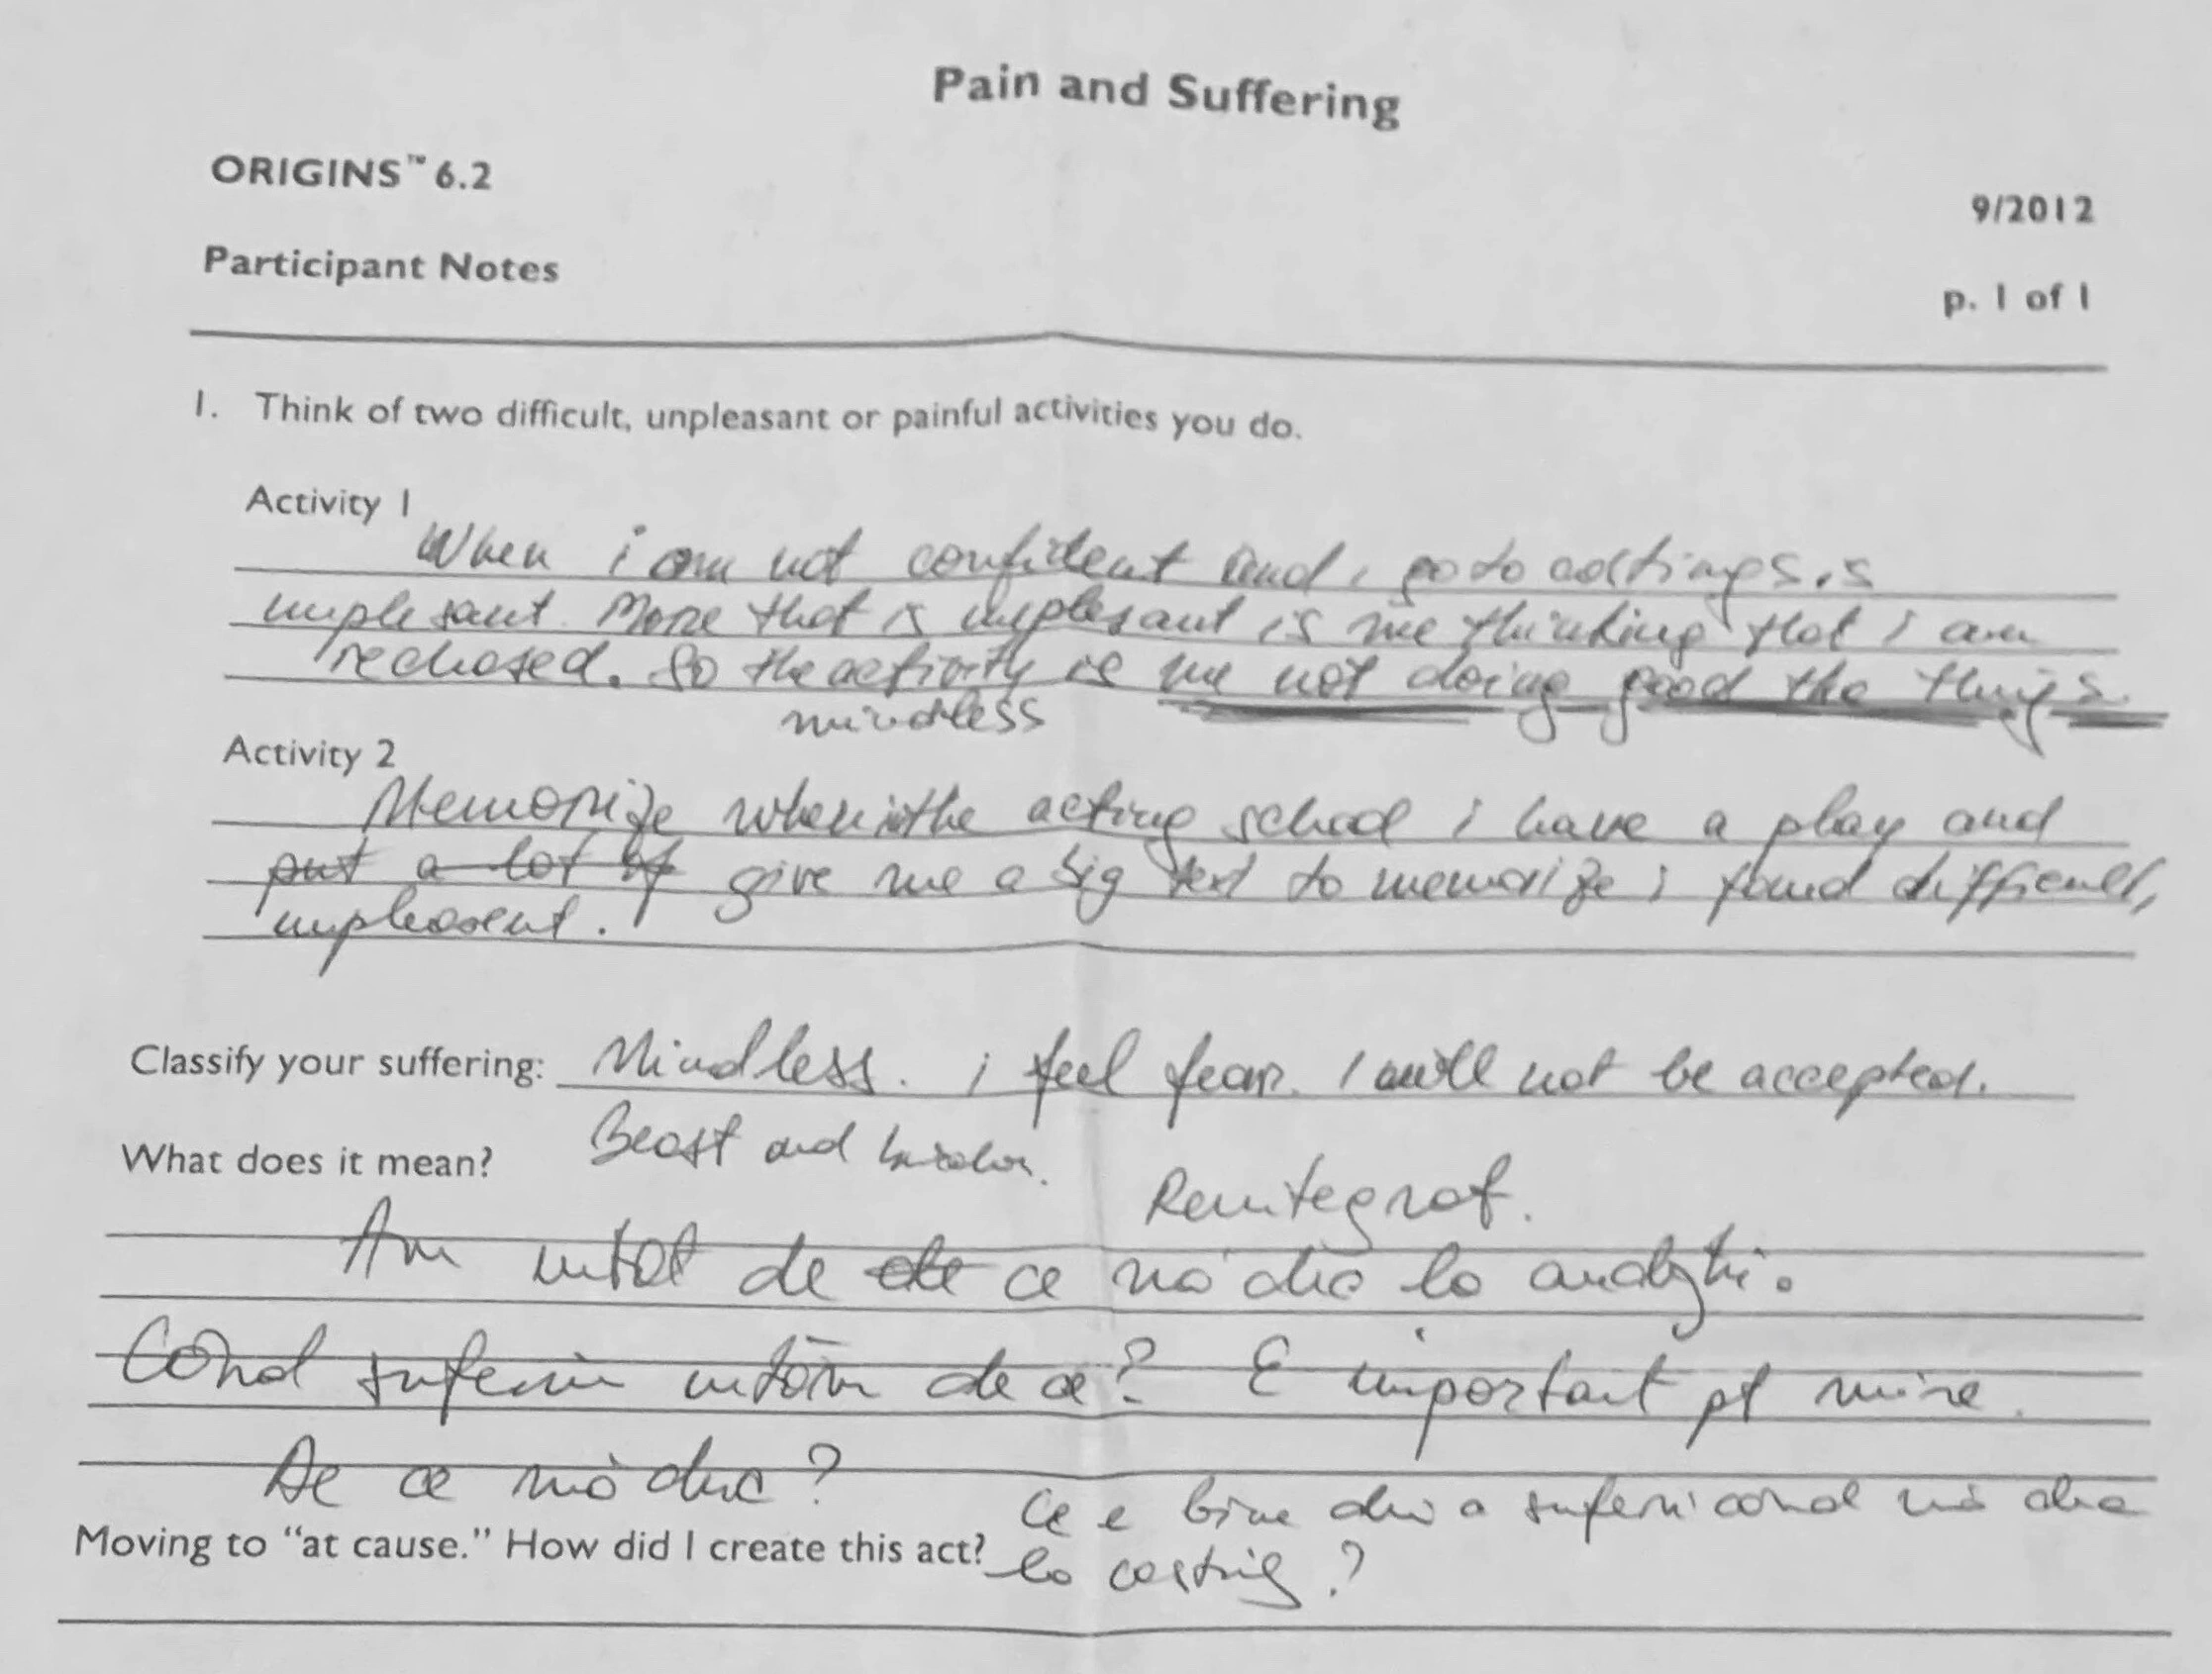 Pain and Suffering
ORIGINS™ 6.2
9/2012
Participant Notes
p. 1 of 1
1. Think of two difficult, unpleasant or painful activities you do.
Activity 1
When i am not confident and i go to castings is
unplesant. More that is unplesant is me thinking that i am
. So the activity is me not doing good the things.
mindless
Activity 2
Memorize when in the acting school i have a play and
put a lot of give me a big text to memorize i found difficult,
unpleasent.
Classify your suffering: Mindless. i feel fear. I will not be accepted.
What does it mean? Beast and
Reintegrat.
Am uitat de ce mă duc la
Când suferim uităm de ce? E important pt mine.
De ce mă duc?
Moving to “at cause.” How did I create this act? Ce e bine din a suferi când mă duc
la casting?